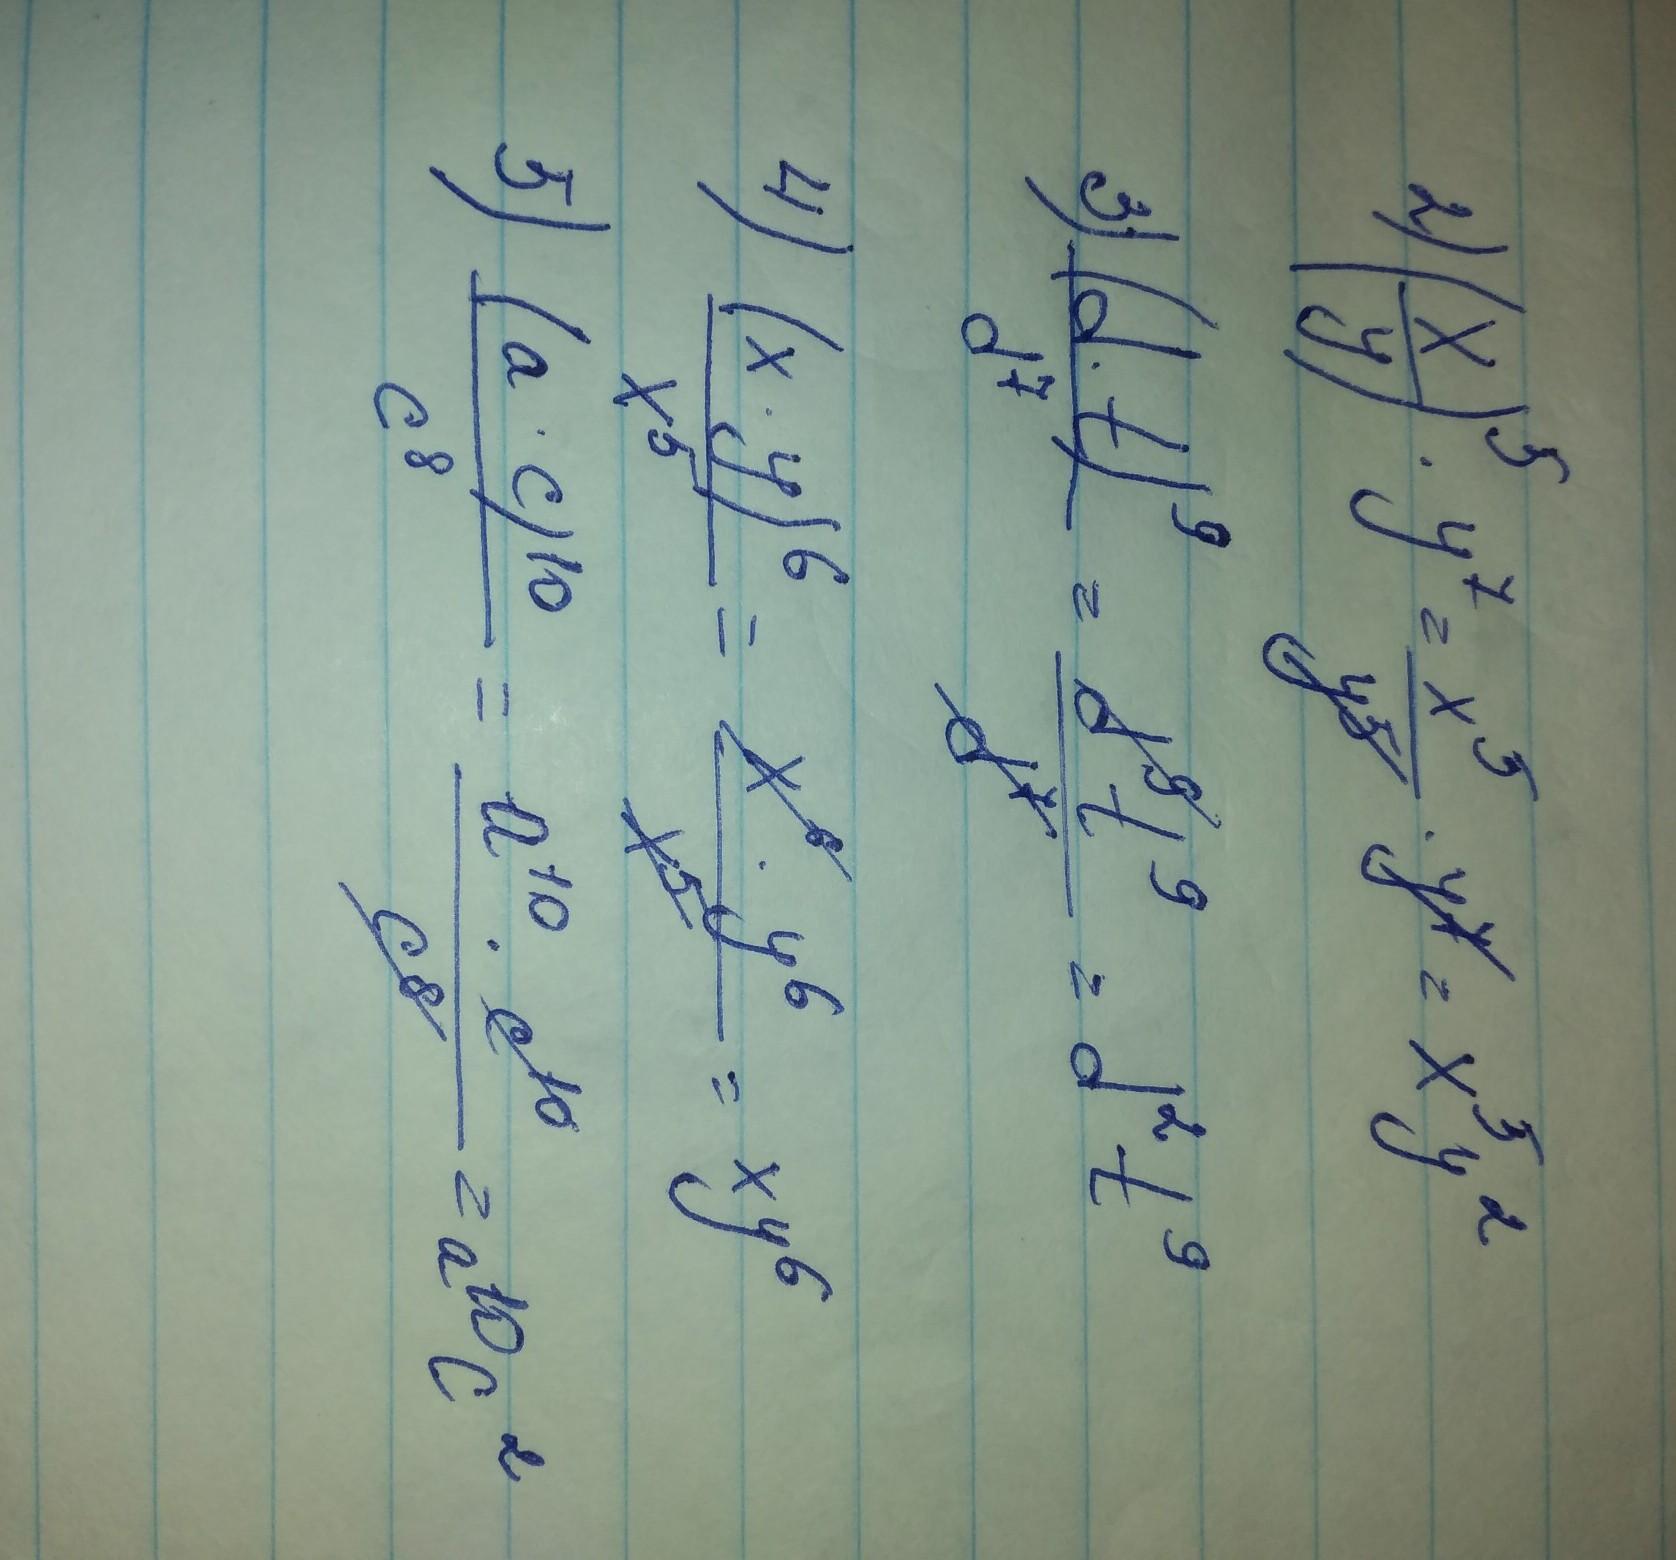 2) (x/y)⁵ · y⁷ = x⁵/y⁵ · y⁷ = x⁵y²
3) (d·t)⁹/d⁷ = d⁹t⁹/d⁷ = d²t⁹
4) (x·y)⁶/x⁵ = x⁶·y⁶/x⁵ = xy⁶
5) (a·c)¹⁰/c⁸ = a¹⁰·c¹⁰/c⁸ = a¹⁰c²